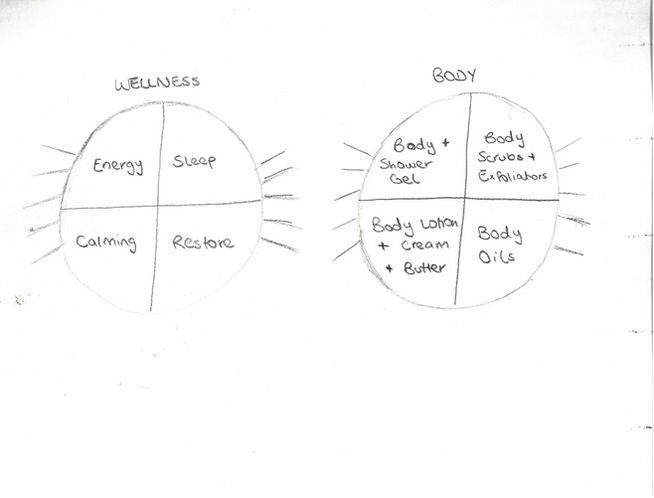 WELLNESS
Energy
Sleep
Calming
Restore
BODY
Body +
Shower
Gel
Body
Scrubs +
Exfoliators
Body Lotion
+ Cream
+ Butter
Body
Oils